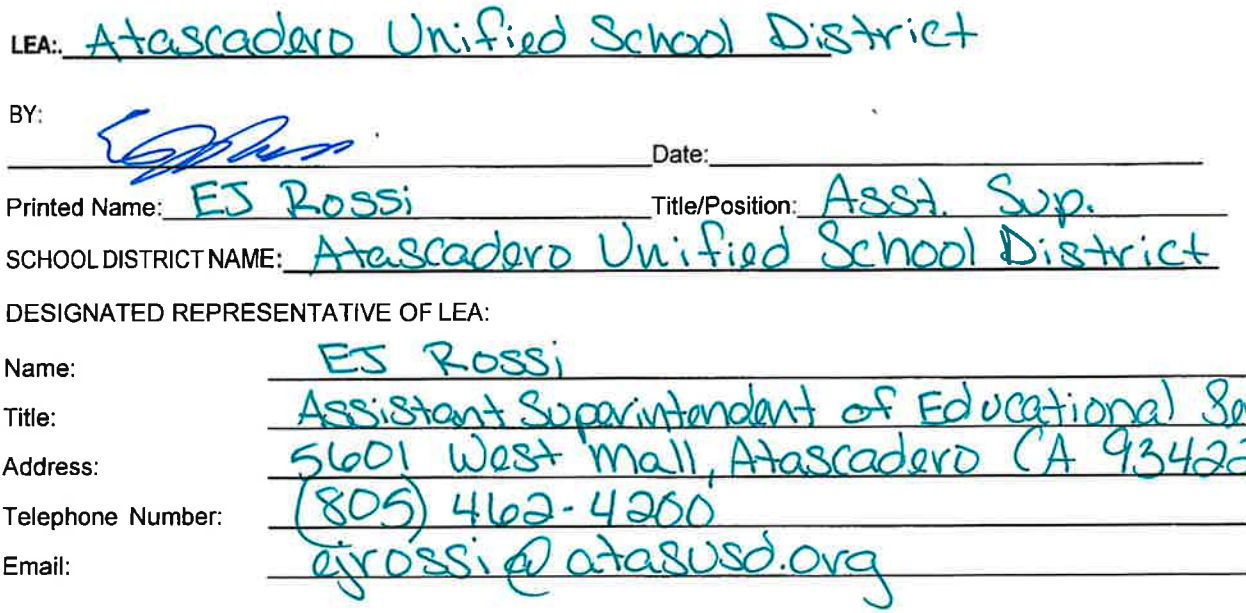 LEA:. Atascadero Unified School District
BY:
Date:
Printed Name: EJ Rossi Title/Position: Asst. Sup.
SCHOOL DISTRICT NAME: Atascadero Unified School District
DESIGNATED REPRESENTATIVE OF LEA:
Name: EJ Rossi
Title: Assistant Superintendent of Educational Se
Address: 5601 West Mall, Atascadero CA 93422
Telephone Number: (805) 462-4200
Email: ejrossi@atasusd.org